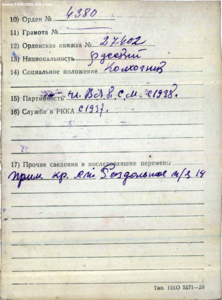 10) Орден № 4380
11) Грамота №
12) Орденская книжка № 27602
13) Национальность русский
14) Социальное положение Колхозник
15) Партийность чл. В.Л.К.С.М. с 1938.
16) Служба в РККА с 1937.
17) Прочие сведения и последующие перемены
прим. кр. ст. Раздольное п/я 14
Тип. НКО 5571—39